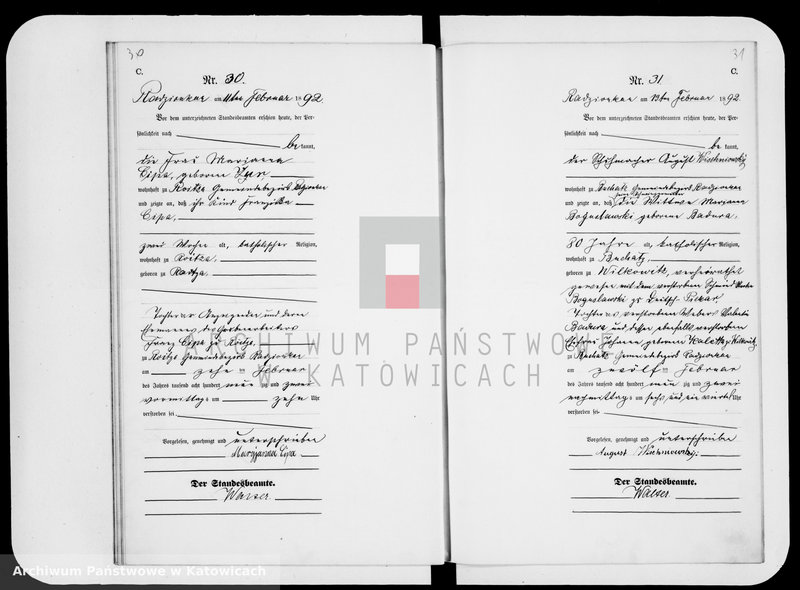 30
C.
Nr. 30.
Radzionkau am 11ten Februar 1892.
Vor dem unterzeichneten Standesbeamten erschien heute, der Per-
sönlichkeit nach
bekannt,
die Frau Marianna
Cipa, geborene
wohnhaft zu Roitza Gemeindebezirk Radzionkau
und zeigte an, daß ihr Kind Franziska
Cipa,
zwei Wochen alt, katholischer Religion,
wohnhaft zu Roitza,
geboren zu Roitza,
Tochter der Anzeigenden und deren
Ehemannes des
Franz Cipa zu Roitza
zu Roitza Gemeindebezirk Radzionkau
am zehn ten Februar
des Jahres tausend acht hundert neunzig und zwei
vormittags um zehn Uhr
verstorben sei
Vorgelesen, genehmigt und unterschrieben
Maryanna Cipa
Der Standesbeamte.
Walser
31
C.
Nr. 31
Radzionkau am 13ten Februar 1892.
Vor dem unterzeichneten Standesbeamten erschien heute, der Per-
sönlichkeit nach
bekannt,
der Schuhmacher August
wohnhaft zu Buchatz Gemeindebezirk Radzionkau
und zeigte an, daß die Wittwe Marianna
Boguslawski geborene Badura,
80 Jahre alt, katholischer Religion,
wohnhaft zu Buchatz,
geboren zu Wilkowitz, verheirathet
gewesen mit dem verstorbenen Schmied
Boguslawski zu Deutsch-Piekar
Tochter des verstorbenen Webers Valentin
Badura und dessen ebenfalls verstorbenen
Ehefrau Johanna geborene
zu Buchatz Gemeindebezirk Radzionkau
am zwölf ten Februar
des Jahres tausend acht hundert neunzig und zwei
nachmittags um sechs und ein viertel Uhr
verstorben sei
Vorgelesen, genehmigt und unterschrieben
August
Der Standesbeamte.
Walser
ARCHIWUM PAŃSTWOWE
W KATOWICACH
Archiwum Państwowe w Katowicach